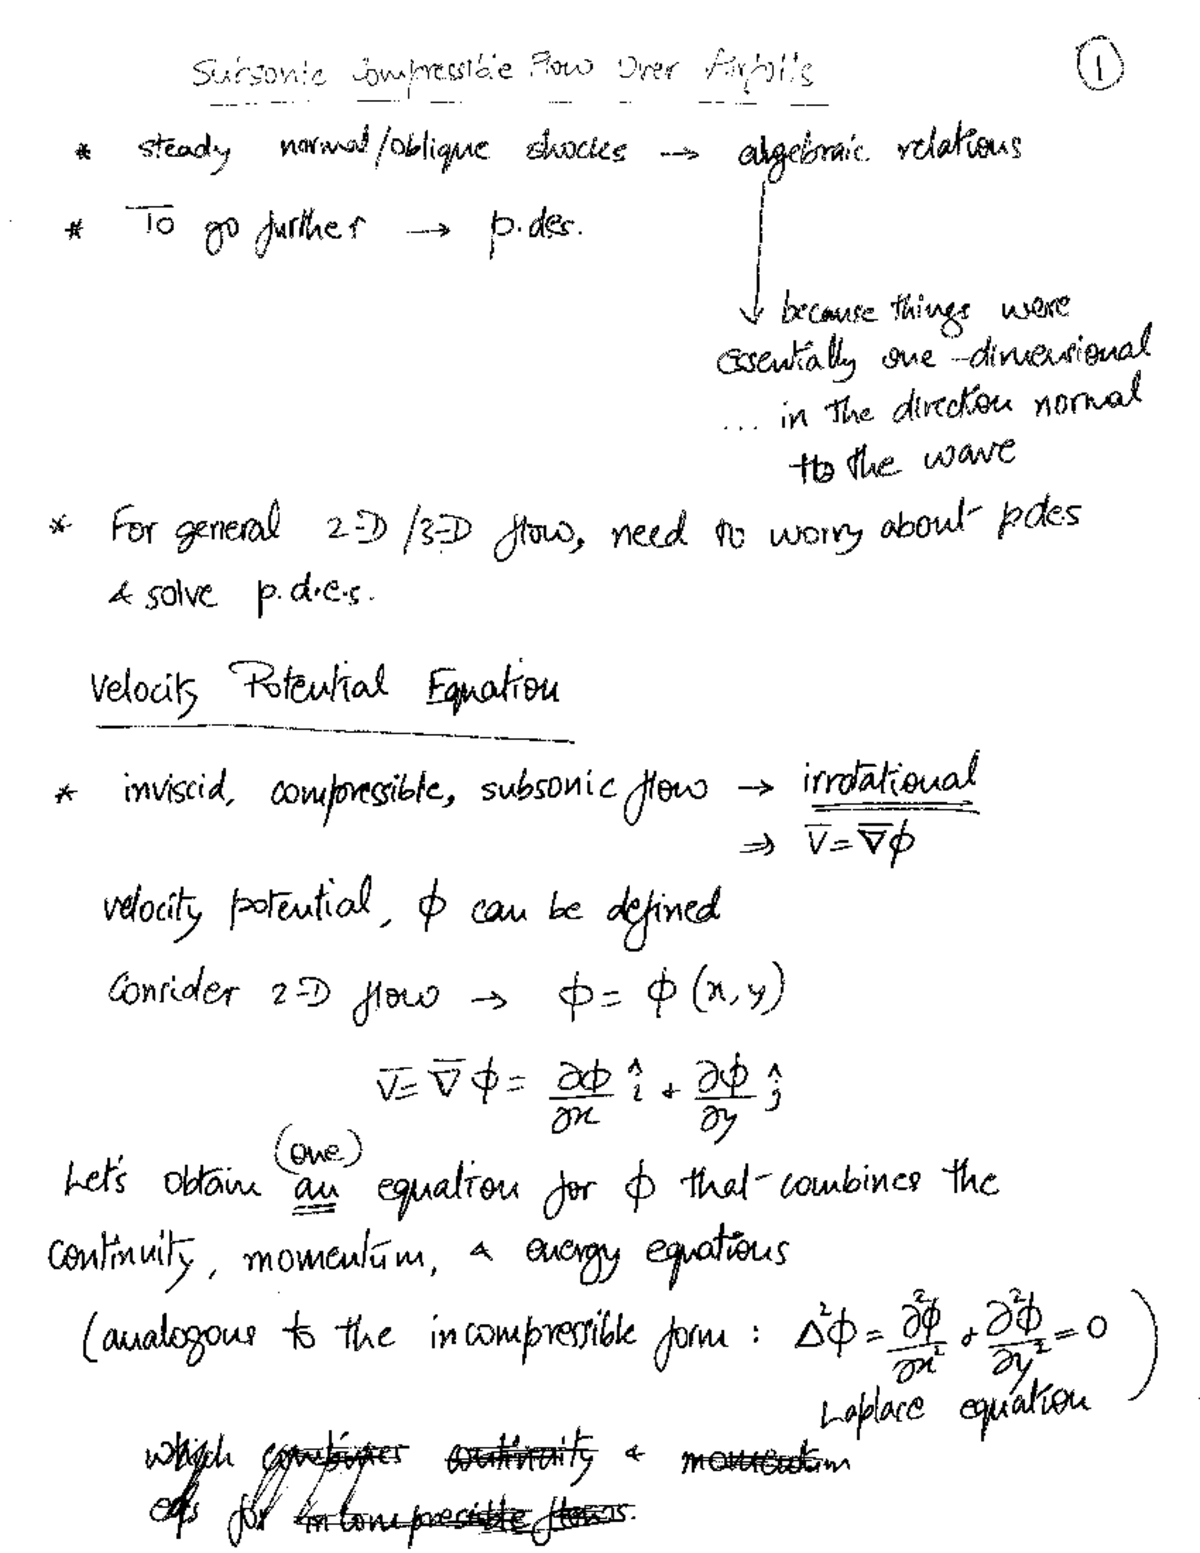 Subsonic Compressible Flow Over Airfoils
1
* steady normal/oblique shocks → algebraic relations
* To go further → p.des.
because things were
essentially one-dimensional
... in the direction normal
to the wave
* For general 2-D/3-D flow, need to worry about pdes
& solve p.d.e.s.
Velocity Potential Equation
* inviscid, compressible, subsonic flow → irrotational
⇒ V̅ = ∇̅ϕ
velocity potential, ϕ can be defined
Consider 2-D flow → ϕ = ϕ(x,y)
V̅ = ∇̅ϕ = ∂ϕ/∂x î + ∂ϕ/∂y ĵ
(one)
Let's obtain an equation for ϕ that combines the
continuity, momentum, & energy equations
(analogous to the incompressible form : Δ²ϕ = ∂²ϕ/∂x² + ∂²ϕ/∂y² = 0)
Laplace equation
which combines continuity & momentum
eqs for incompressible flows.